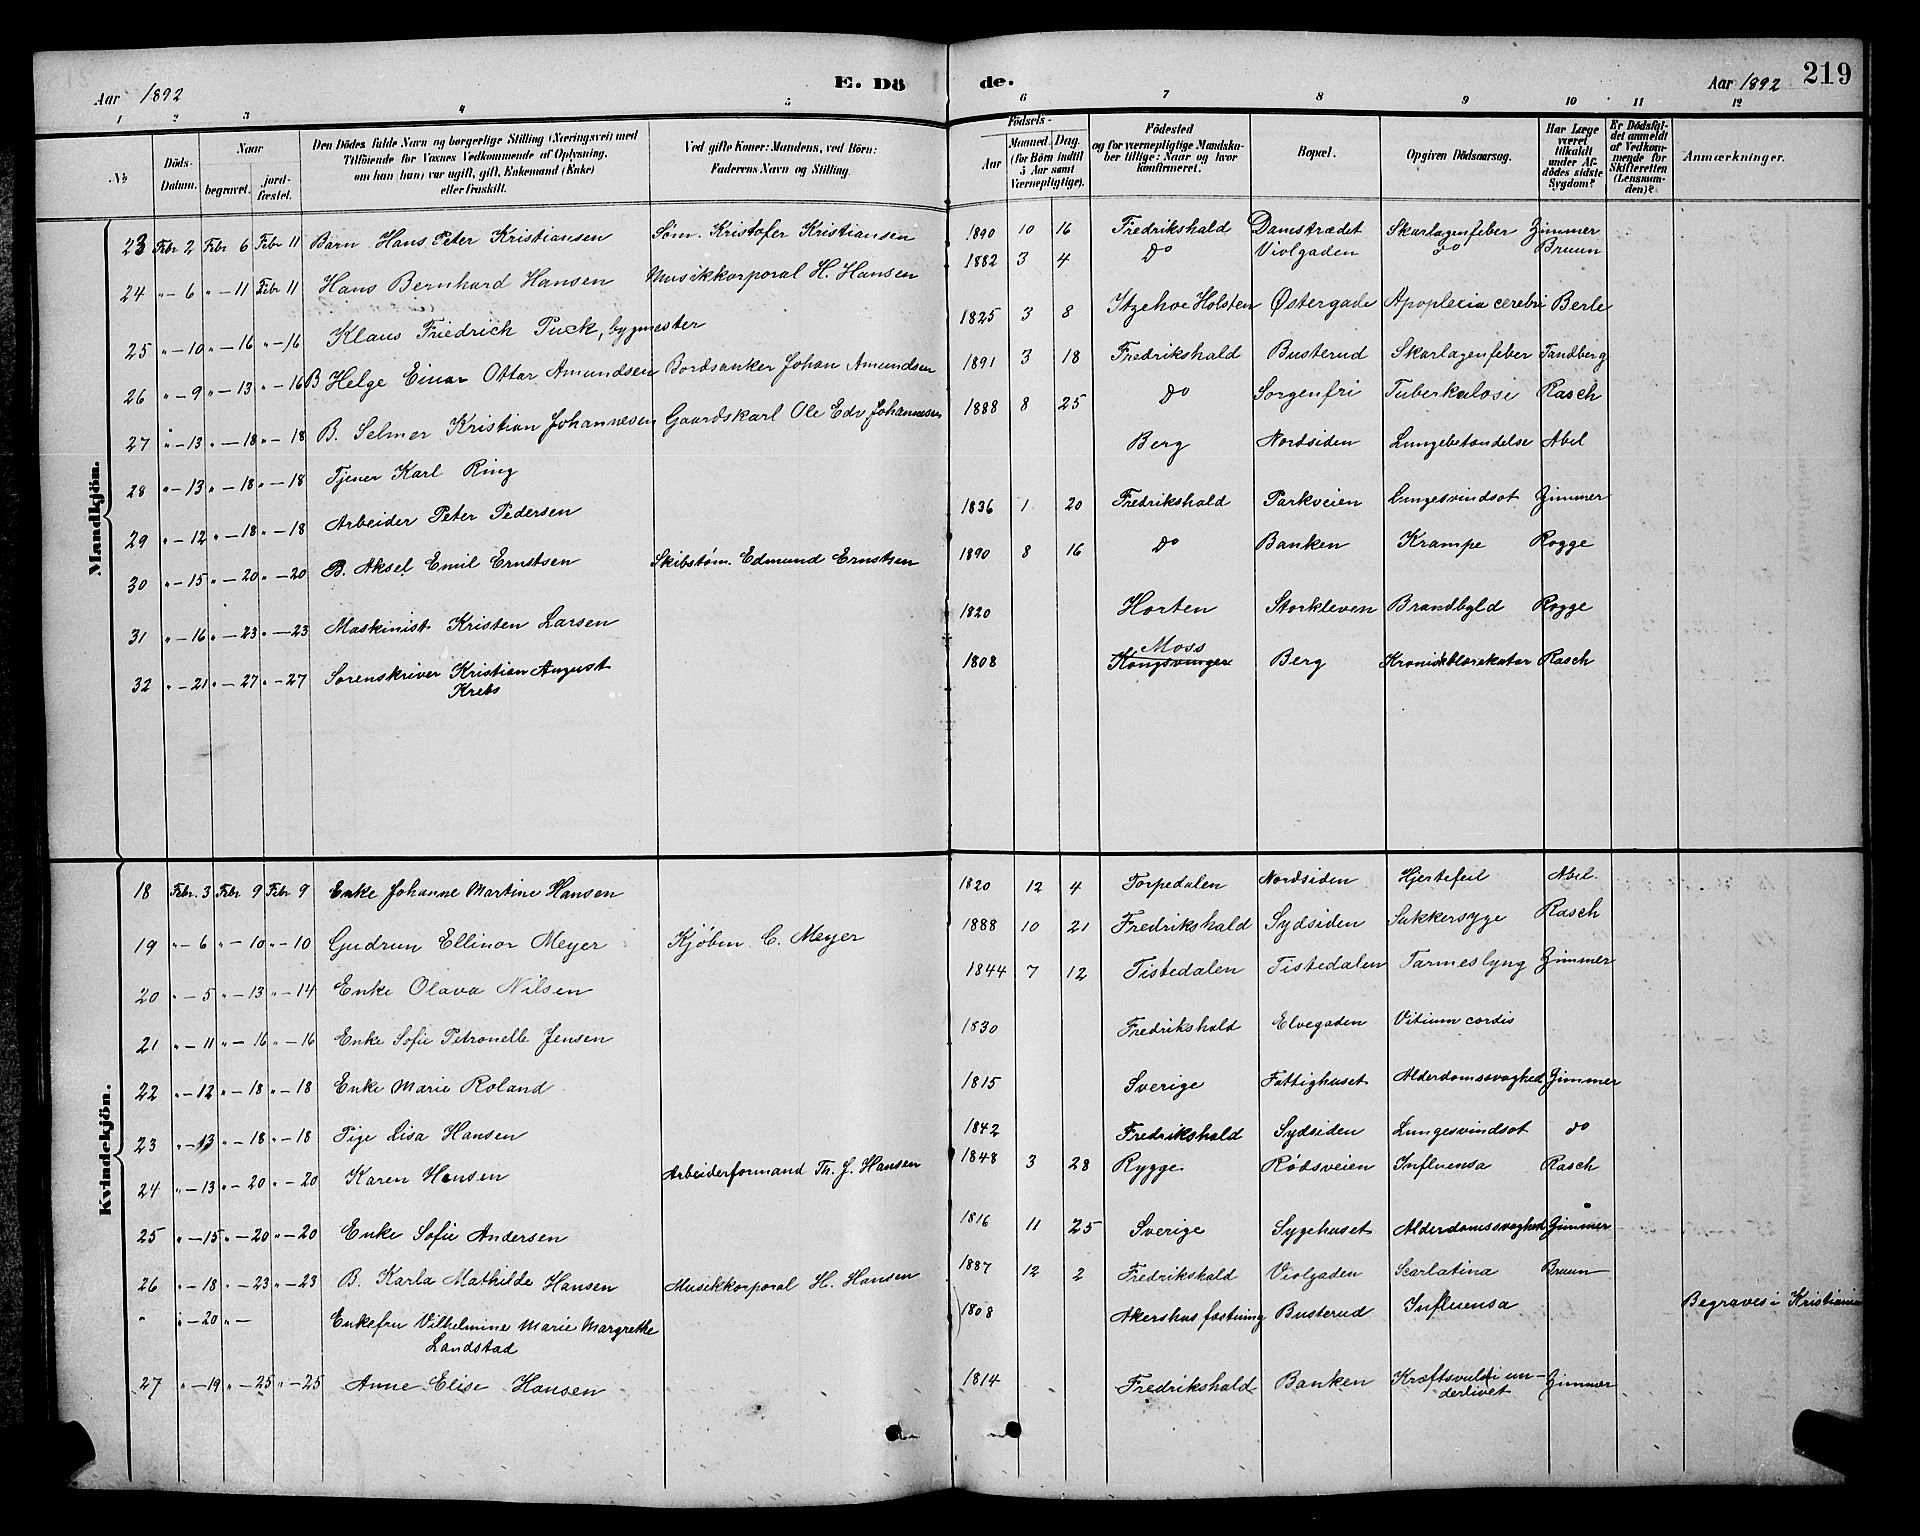 Aar 1892 E. Dö de. Aar 1892 219
1 2 3 4 5 6 7 8 9 10 11 12
№ Döds-Datum. Naar begravet. jordfæstet. Den Dödes fulde Navn og borgerlige Stilling (Næringsvei) med Tilföiende for Voxnes Vedkommende af Oplysning, om han (hun) var ugift, gift, Enkemand (Enke) eller fraskilt. Ved gifte Koner: Mandens, ved Börn: Faderens Navn og Stilling. Födsels- Aar Maaned. Dag. (for Börn indtil 5 Aar samt Værnepligtige). Födested og for værnepligtige Mandskaber tillige: Naar og hvor konfirmeret. Bopæl. Opgiven Dödsaarsag. Har Læge været tilkaldt under Afdödes sidste Sygdom? Er Dödsfaldet anmeldt af Vedkommende for Skifteretten (Lensmanden)? Anmærkninger.
Mandkjön.
23 Febr 2 Febr 6 Febr 11 Barn Hans Peter Kristiansen Søm. Kristofer Kristiansen 1890 10 16 Fredrikshald Damstrædet Skarlagenfeber Zimmer
24 " — 6 " — 11 Febr 11 Hans Bernhard Hansen Musikkorporal H. Hansen 1882 3 4 Do Violgaden Do Bruun
25 " — 10 " — 16 " — 16 Klaus Friedrich Puck, bygmester 1825 3 8 Itzehoe Holsten Østergade Apoplexia cerebri Berle
26 " — 9 " — 13 " — 16 B Helge Einar Ottar Amundsen Bordsanker Johan Amundsen 1891 3 18 Fredrikshald Busterud Skarlagenfeber Tandberg
27 " — 13 " — 18 " — 18 B. Selmer Kristian Johannesen Gaardskarl Ole Edv. Johannesen 1888 8 25 Do Sorgenfri Tuberkulose Rasch
28 " — 13 " — 18 " — 18 Tjener Karl Ring Berg Nordsiden Lungebetændelse Abel
29 " — 12 " — 18 " — 18 Arbeider Peter Pedersen 1836 1 20 Fredrikshald Parkveien Lungesvindsot Zimmer
30 " — 15 " — 20 " — 20 B. Aksel Emil Ernstsen Skibstøm. Edmund Ernstsen 1890 8 16 Do Banken Krampe Rogge
31 " — 16 " — 23 " — 23 Maskinist Kristen Larsen 1820 Horten Storkleven Brandbyld Rogge
32 " — 21 " — 27 " — 27 Sorenskriver Kristian August Krebs 1808 Moss Kongsvinger Berg Kronisk blærekatar Rasch
Kvindekjön.
18 Febr. 3 Febr 9 Febr 9 Enke Johanne Martine Hansen 1820 12 4 Torpedalen Nordsiden Hjertefeil Abel.
19 " — 6 " — 10 " — 10 Gudrun Ellinor Meyer Kjøbm. C. Meyer 1888 10 21 Fredrikshald Sydsiden Sukkersyge Rasch
20 " — 5 " — 13 " — 14 Enke Olava Nilsen 1844 7 12 Tistedalen Tistedalen Tarmeslyng Zimmer
21 " — 11 " — 16 " — 16 Enke Sofie Petronelle Jensen 1830 Fredrikshald Elvegaden Vitium cordis
22 " — 12 " — 18 " — 18 Enke Marie Roland 1815 Sverige Fattighuset Alderdomssvaghed Zimmer
23 " — 13 " — 18 " — 18 Pige Lisa Hansen 1842 Fredrikshald Sydsiden Lungesvindsot do
24 " — 13 " — 20 " — 20 Karen Hansen Arbeiderformand Th. J. Hansen 1848 3 28 Rygge Rødsveien Influensa Rasch
25 " — 15 " — 20 " — 20 Enke Sofie Andersen 1816 11 25 Sverige Sygehuset Alderdomssvaghed Zimmer
26 " — 18 " — 23 " — 23 B. Karla Mathilde Hansen Musikkorporal H. Hansen 1887 12 2 Fredrikshald Violgaden Scarlatina Bruun
" " — 20 " — Enkefru Vilhelmine Marie Margrethe Landstad 1808 Akershus fæstning Busterud Influensa Begraves i Kristiania
27 " — 19 " — 25 " — 25 Anne Elise Hansen 1814 Fredrikshald Banken Kræftsvulst i underlivet Zimmer